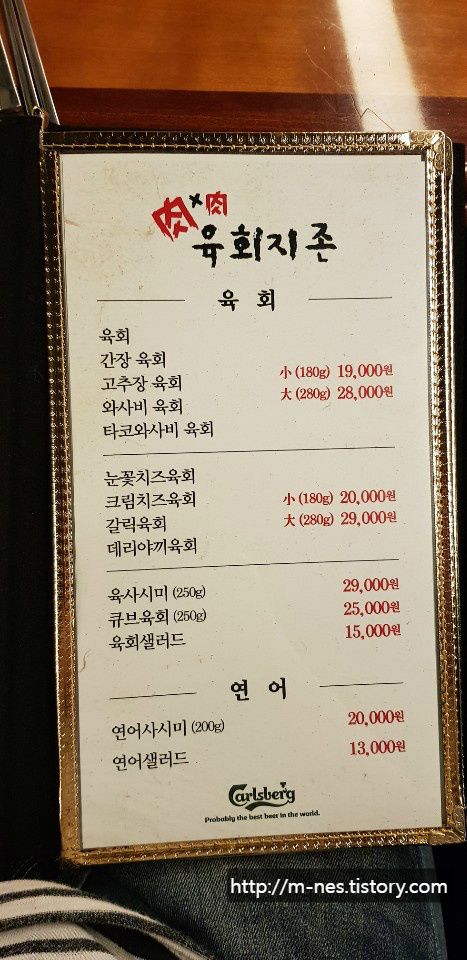 肉×肉
육회지존
육 회
육회
간장 육회
고추장 육회
와사비 육회
타코와사비 육회
小 (180g) 19,000원
大 (280g) 28,000원
눈꽃치즈육회
크림치즈육회
갈릭육회
데리야끼육회
小 (180g) 20,000원
大 (280g) 29,000원
육사시미 (250g) 29,000원
큐브육회 (250g) 25,000원
육회샐러드 15,000원
연 어
연어사시미 (200g) 20,000원
연어샐러드 13,000원
Carlsberg
Probably the best beer in the world.
http://m-nes.tistory.com